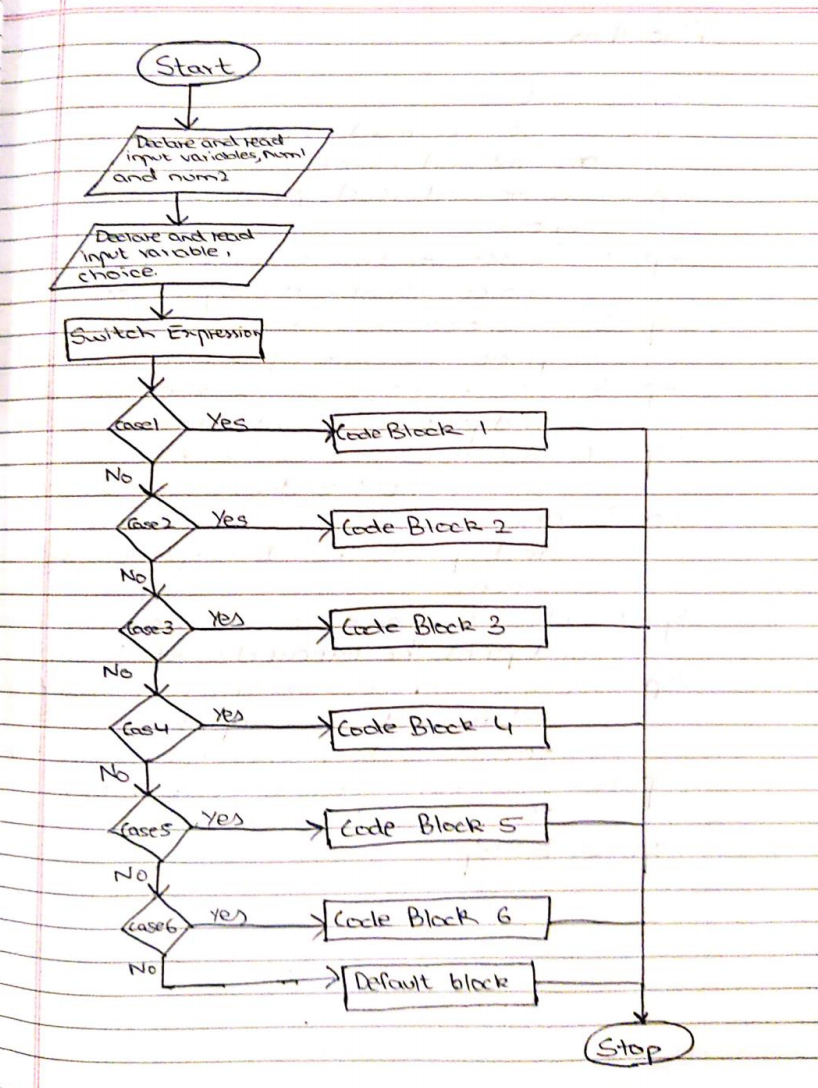 Start
Declare and read
input variables, num1
and num2
Declare and read
input variable,
choice.
Switch Expression
Case1
Yes
Code Block 1
No
Case2
Yes
Code Block 2
No
Case3
Yes
Code Block 3
No
Cas4
Yes
Code Block 4
No
Case5
Yes
Code Block 5
No
Case6
Yes
Code Block 6
No
Default block
Stop